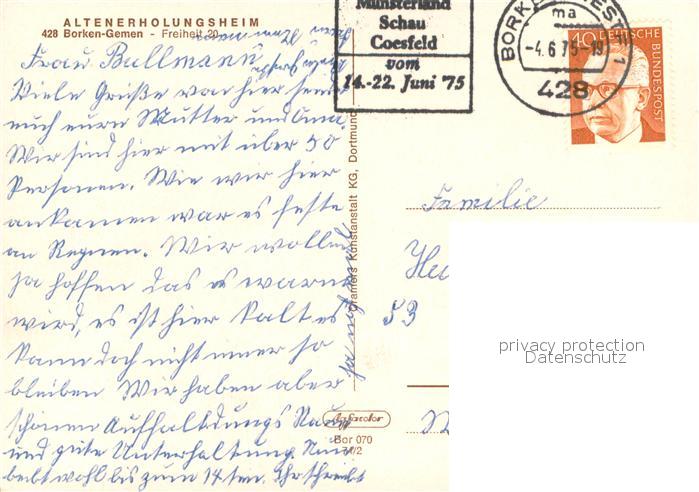 ALTENERHOLUNGSHEIM
428 Borken-Gemen - Freiheit 20
Frau Bullmann
Viele Grüße von hier sende
euch eure Mutter und Oma.
Wir sind hier mit über 50
Personen. Wie wir hier
ankamen war es feste
an Regnen. Wir wollen
ja hoffen das es warm
wird, es ist hier Kalt es
kann doch nicht immer so
bleiben Wir haben aber
schönen Aufhaltdungs Raum
und gute Unterhaltung Nun
lebt wohl bis zum 14ten. Ihr schreibt
ja noch mal
Cramers Kunstanstalt KG, Dortmund
Münsterland
Schau
Coesfeld
vom
14.-22. Juni '75
BORKEN, WESTF 1
ma
-4.6.75-19
428
40 DEUTSCHE
BUNDESPOST
Familie
He
53
privacy protection
Datenschutz
Bor 070